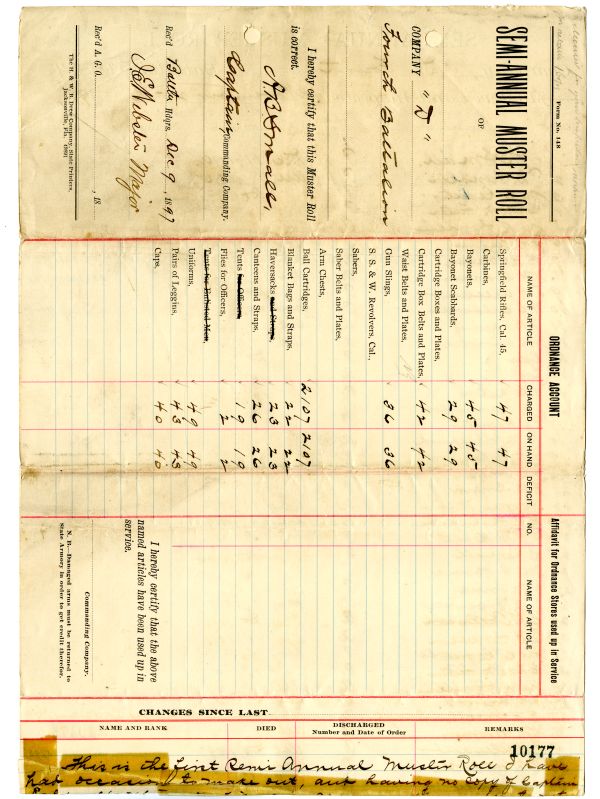 Form No. 148
SEMI-ANNUAL MUSTER ROLL
OF
COMPANY "D"
Fourth Battalion
I hereby certify that this Muster Roll
is correct.
A. B. Small,
Captain Commanding Company.
Rec'd Batt'n Hdqrs. Dec 9, 1897
J. E. Webster Major
Rec'd A. G. O. , 18
The H. & W. B. Drew Company, State Printers,
Jacksonville, Fla.
ORDNANCE ACCOUNT
NAME OF ARTICLE CHARGED ON HAND DEFICIT
Springfield Rifles, Cal. 45, 47 47
Carbines,
Bayonets, 45 45
Bayonet Scabbards, 29 29
Cartridge Boxes and Plates,
Cartridge Box Belts and Plates, 42 42
Waist Belts and Plates,
Gun Slings, 36 36
S. S. & W. Revolvers, Cal.,
Sabers,
Saber Belts and Plates,
Arm Chests,
Ball Cartridges, 2107 2107
Blanket Bags and Straps, 22 22
Haversacks and Straps, 23 23
Canteens and Straps, 26 26
Tents for Officers, 19 19
Flies for Officers, 2 2
Tents for Enlisted Men,
Uniforms, 49 49
Pairs of Leggins, 43 43
Caps, 40 40
Affidavit for Ordnance Stores used up in Service
NO. NAME OF ARTICLE
I hereby certify that the above
named articles have been used up in
service.
Commanding Company.
N. B.—Damaged arms must be returned to
State Armory in order to get credit therefor.
CHANGES SINCE LAST
NAME AND RANK DIED DISCHARGED REMARKS
Number and Date of Order
10177
This is the first Semi Annual Muster Roll I have
had occasion to make out, and having no copy of Captain